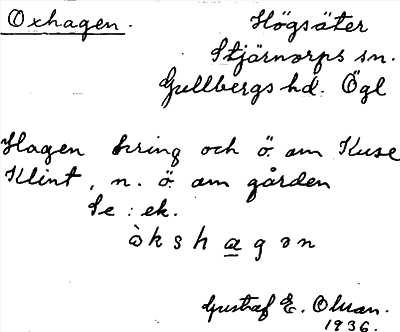 Oxhagen.
Högsäter
Stjärnorps sn.
Gullbergs hd. Ögl
Hagen kring och ö. om Kuse
Klint, n. ö. om gården
Se : ek.
òkshagən
Gustaf E. Olsson.
1936.